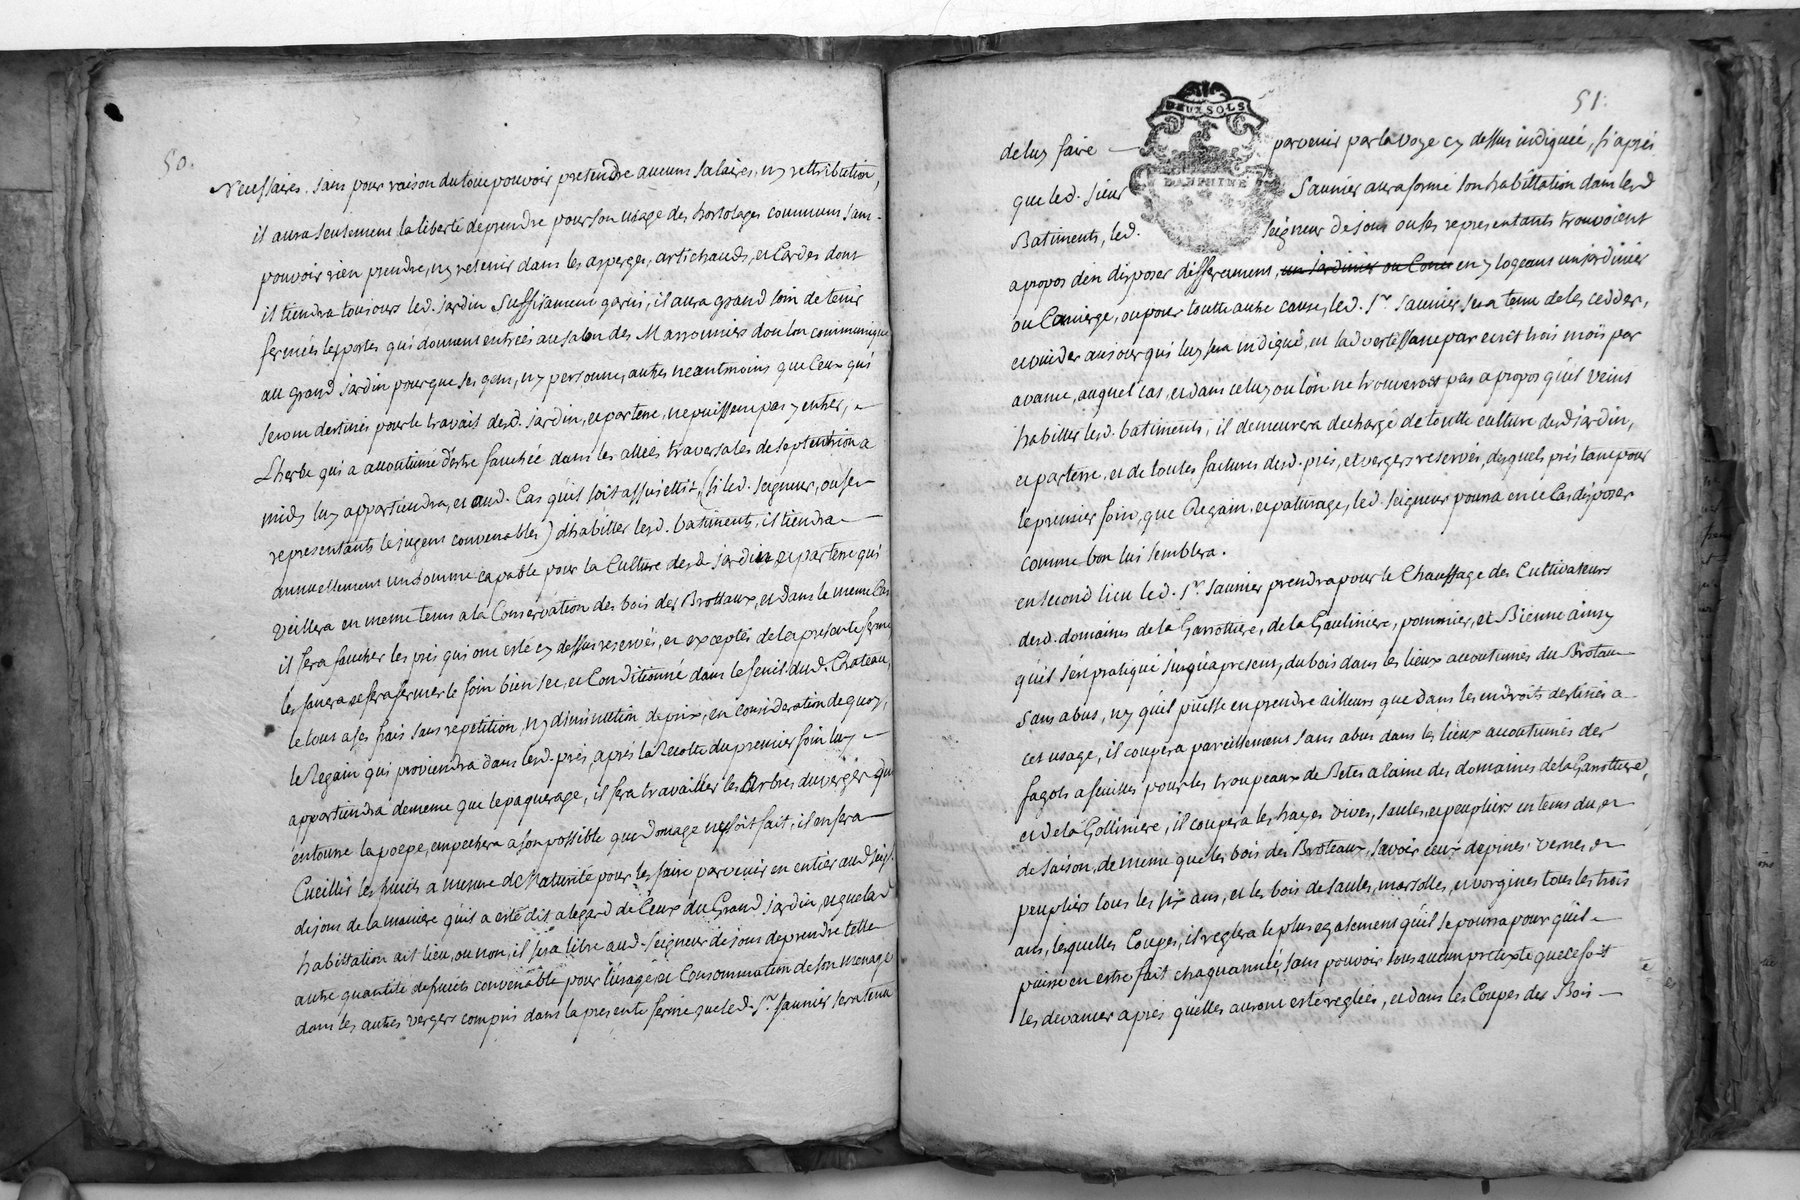 50.
necessaires, sans pour raison du tout pouvoir pretendre aucuns salaires, ny rettribution,
il aura seulement la liberté de prendre pour son usage des hortolages communs sans
pouvoir rien prendre, ny retenir dans les asperges, artichauds, et Cardes dont
il tiendra toujours led. jardin suffisament garni, il aura grand soin de tenir
fermées les portes qui donnent entrées au salon des Marronniers dou lon communique
au grand jardin pour que ses gens, ny personne, autres neantmoins que Ceux qui
seront destinés pour le travail desd. jardin, et parterre, ne puissent pas y entrer,
L'herbe qui a accoutumé d'estre fauchée dans les allées traversales de septentrion a
midy luy appartiendra, et aud. Cas qu'il soit assujettit, (si led. seigneur, ou ses
representants le jugent convenables) d'habitter lesd. batiments, il tiendra
annuellement un homme capable pour la Culture desd. jardin, et parterre qui
veillera en meme tems a la Conservation des bois des Brottaux, et dans le meme Cas
il fera faucher les prés qui ont esté cy dessus reservés, et exceptés de la presante ferme
les fanera et fera fermer le foin bien sec, et Conditionné dans le fenil dud. Chateau,
le tout a ses frais sans repetition, ny diminution de prix, en consideration de quoy,
le Regain qui proviendra dans lesd. prés, aprés la Recolte du premier foin luy
appartiendra de meme que le paquerage, il fera travailler les Arbres du verger qui
entourre la poepe, empechera a son possible que domage ny soit fait, il en fera
Cueillir les fruits a mesure de Maturité pour les faire parvenir en entier aud. seigr.
dejons de la maniere qu'il a esté dit a legard de Ceux du Grand jardin, et que lad.
habittation ait lieu, ou non, il sera libre aud. seigneur dejons de prendre telle
autre quantité de fruits convenable pour l'usage, et Consommation de son menage
dans les autres vergers compris dans la presente ferme que led. Sr. Saunier sera tenu
51.
DEUX SOLS
DAUPHINÉ
de luy faire parvenir par la voye cy dessus indiquée, si aprés
que led. sieur Saunier aura formé son habittation dans lesd.
Batiments, led. seigneur dejons ou ses representants trouvoient
apropos d'en disposer differamment, un jardinier ou Conci en y logeant un jardinier
ou Concierge, ou pour toutte autre cause, led. Sr. Saunier sera tenu de les cedder,
et vuider au jour qui luy sera indiqué, en ladvertissant par ecrit trois mois par
avance, auquel cas, et dans celuy ou l'on ne trouveroit pas apropos qu'il veint
habitter lesd. batiments, il demeurera dechargé de toutte culture desd. jardin,
et parterre, et de toutes factures desd. prés, et vergers reservés, desquels prés tant pour
le premier foin, que Regain, et paturage, led. seigneur pourra en ce Cas disposer
comme bon lui semblera.
en second lieu led. Sr. Saunier prendra pour le Chauffage des Cultivateurs
desd. domaines de la Garrottiere, de la Gauliniere, pommier, et Bienne ainsy
qu'il s'en pratiqué jusqu'a present, du bois dans les lieux accoutumés du Brotau
sans abus, ny qu'il puisse en prendre ailleurs que dans les endroits destinés a
cet usage, il coupera pareillement sans abus dans les lieux accoutumés des
fagots a feuilles pour les troupeaux de Betes a laine des domaines de la Garrottiere,
et de la Golliniere, il coupera les hayes vives, saules, et peupliers en tems du, et
de saison, de meme que les bois des Broteaux, savoir ceux depines, vernes, et
peupliers tous les six ans, et les bois de saules, marsolles, et vorgines tous les trois
ans, lesquelles Coupes, il reglera le plus egalement qu'il se pourra pour qu'il
puisse en estre fait chaqu'année, sans pouvoir sous aucun pretexte que ce soit
les devancer aprés qu'elles auront esté reglées, et dans les Coupes des Bois